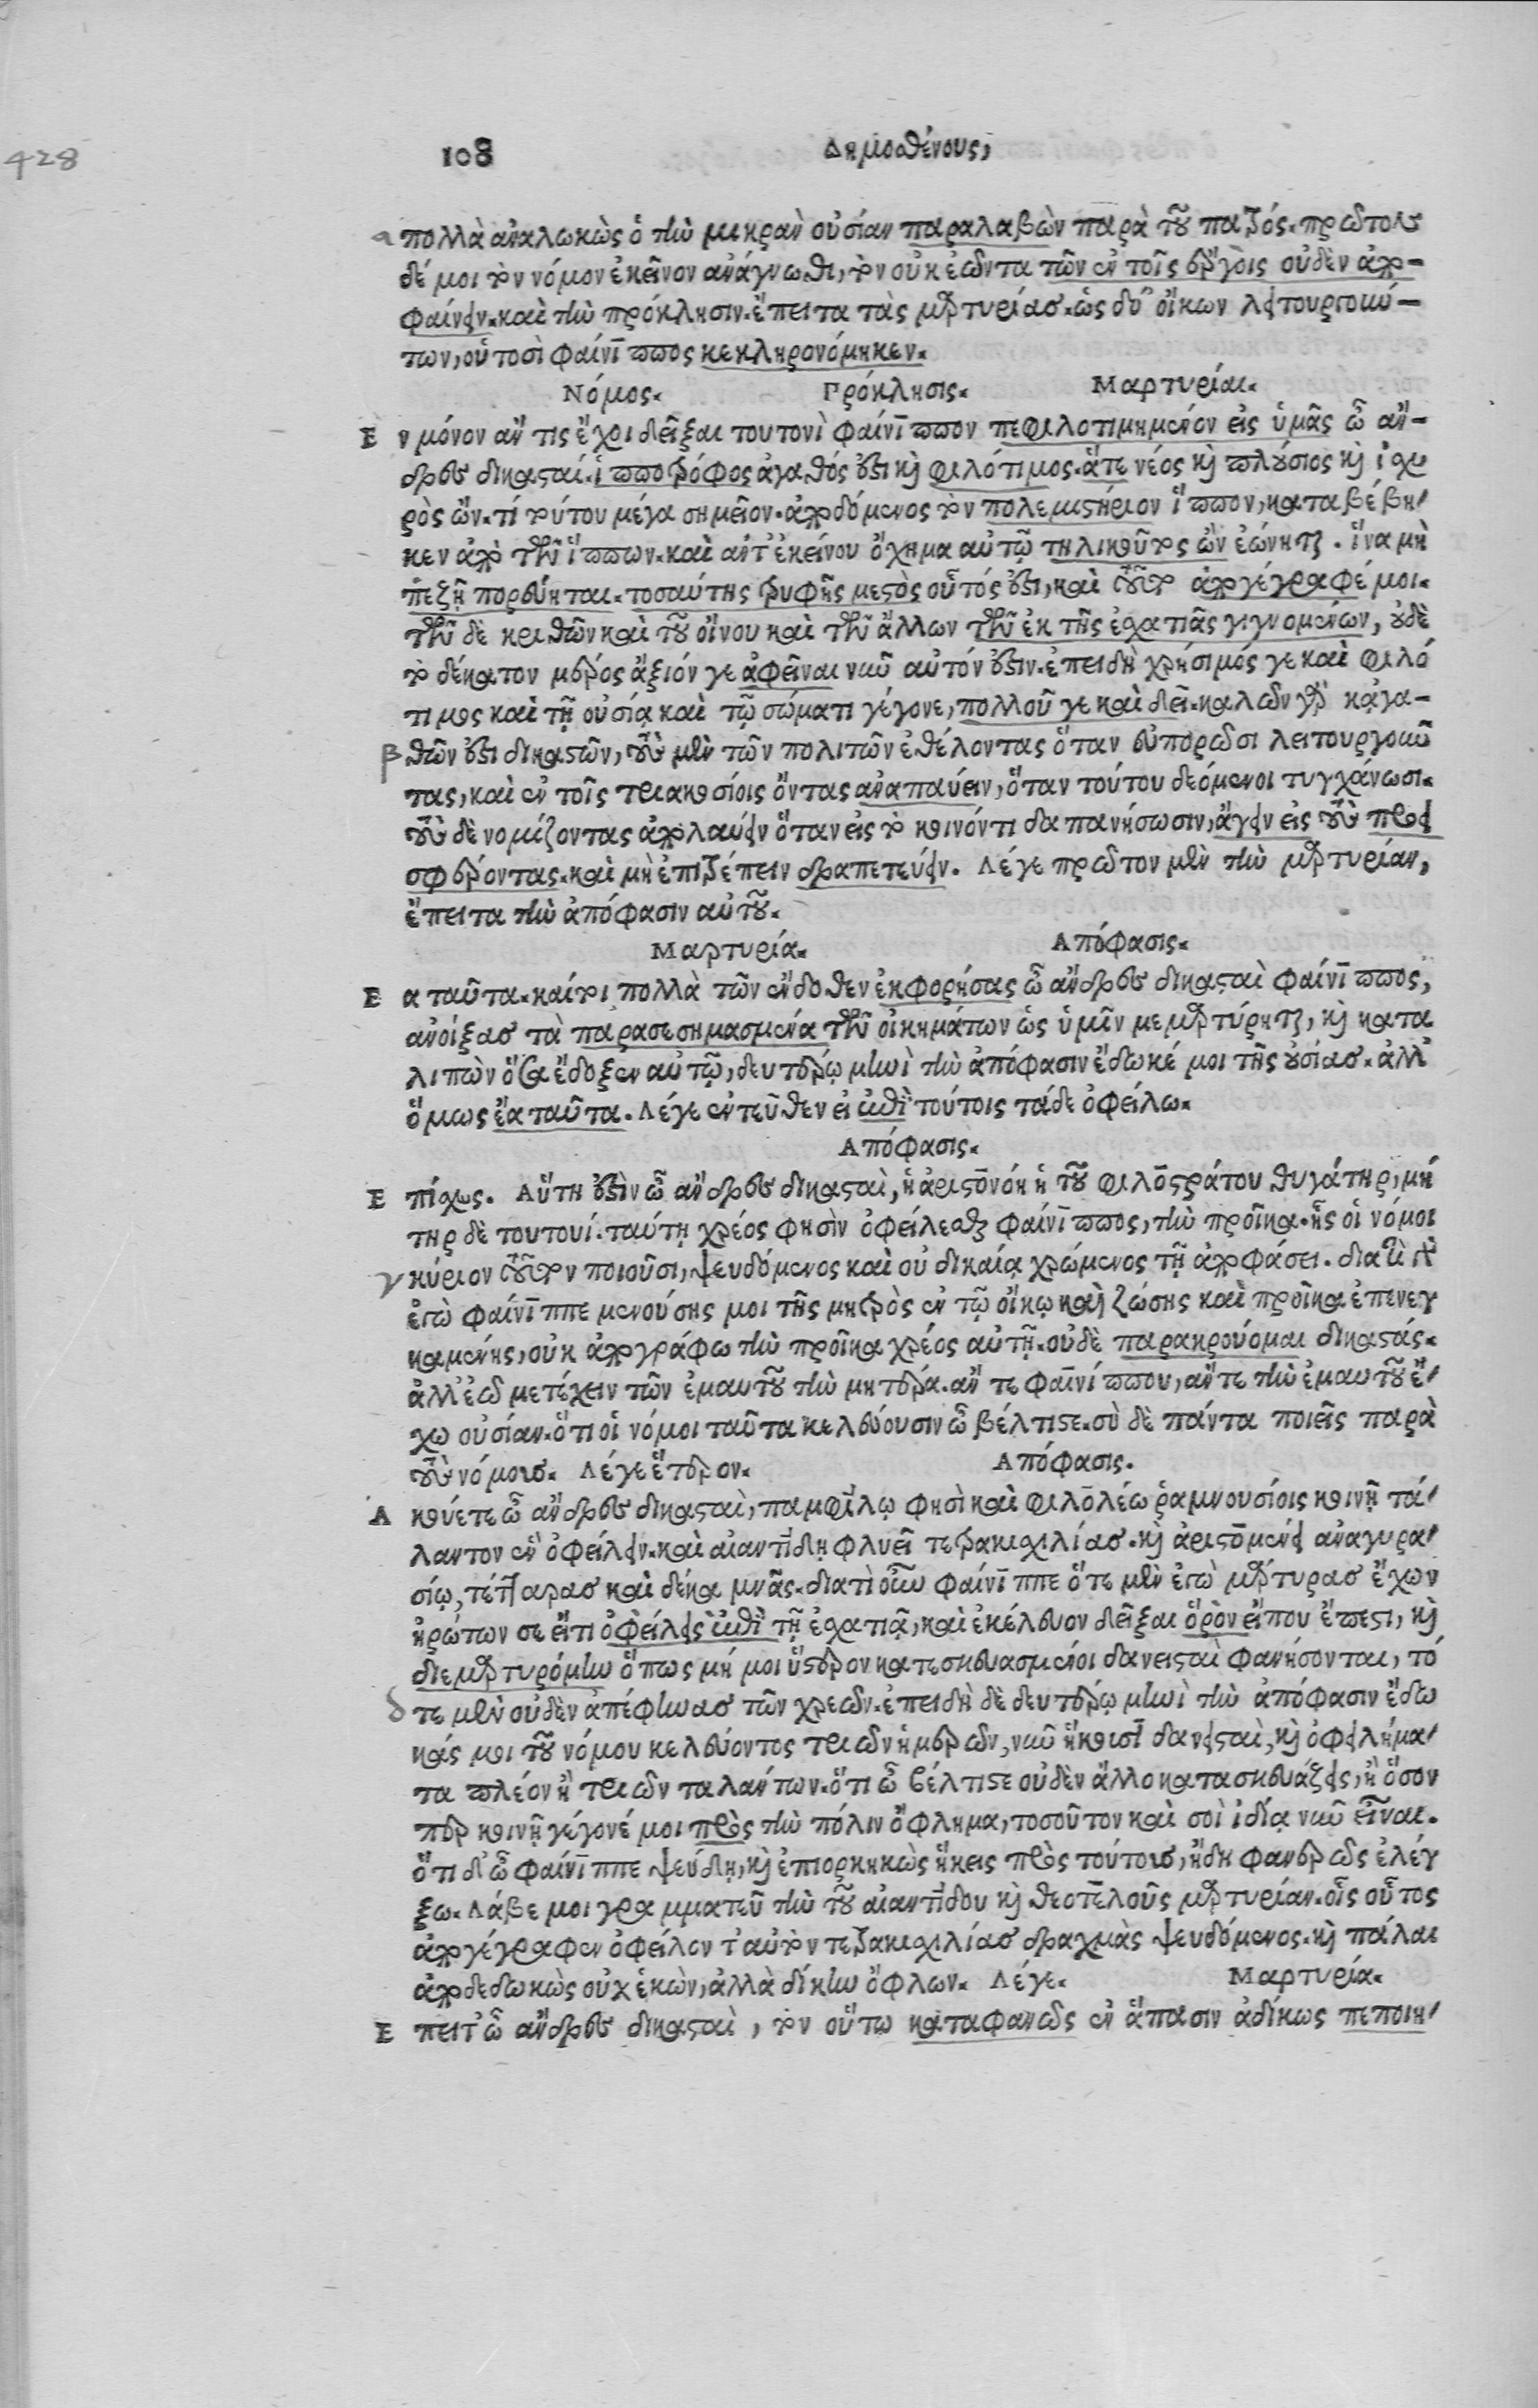 428
108 Δημοσθένους,
α πολλὰ ἀναλωκὼς ὁ τὴν μικρὰν οὐσίαν παραλαβὼν παρὰ τοῦ πατρός. πρῶτον
δέ μοι τὸν νόμον ἐκεῖνον ἀνάγνωθι, τὸν οὐκ ἐῶντα τῶν ἐν τοῖς ἔργοις οὐδὲν ἀπο-
φαίνειν. καὶ τὴν πρόκλησιν. ἔπειτα τὰς μαρτυρίας. ὡς δύ' οἴκων λειτουργούν-
των, οὑτοσὶ φαίνιππος κεκληρονόμηκεν.
Νόμος. Πρόκλησις. Μαρτυρίαι.
Ε ν μόνον ἄν τις ἔχοι δεῖξαι τουτονὶ φαίνιππον πεφιλοτιμημένον εἰς ὑμᾶς ὦ ἄν-
δρες δικασταί. ἱπποτρόφος ἀγαθός ἐστι καὶ φιλότιμος. ἅτε νέος καὶ πλούσιος καὶ ἰσχυ
ρὸς ὤν. τί τούτου μέγα σημεῖον. ἀποδόμενος τὸν πολεμιστήριον ἵππον, καταβέβη-
κεν ἀπὸ τῶν ἵππων. καὶ ἀντ' ἐκείνου ὄχημα αὑτῷ τηλικοῦτος ὢν ἐώνηται. ἵνα μὴ
πεζῇ πορεύηται. τοσαύτης τρυφῆς μεστὸς οὗτός ἐστι, καὶ τοῦτο ἀπογέγραφέ μοι.
τῶν δὲ κριθῶν καὶ τοῦ οἴνου καὶ τῶν ἄλλων τῶν ἐκ τῆς ἐσχατιᾶς γιγνομένων, οὐδὲ
τὸ δέκατον μέρος ἄξιόν γε ἀφεῖναι νῦν αὐτόν ἐστιν. ἐπειδὴ χρήσιμός γε καὶ φιλό
τιμος καὶ τῇ οὐσίᾳ καὶ τῷ σώματι γέγονε, πολλοῦ γε καὶ δεῖ. καλῶν γὰρ κἀγα-
β θῶν ἐστι δικαστῶν, τοὺς μὲν τῶν πολιτῶν ἐθέλοντας ὅταν εὐπορῶσι λειτουργοῦν
τας, καὶ ἐν τοῖς τριακοσίοις ὄντας ἀναπαύειν, ὅταν τούτου δεόμενοι τυγχάνωσι.
τοὺς δὲ νομίζοντας ἀπολαύειν ὅταν εἰς τὸ κοινόν τι δαπανήσωσιν, ἄγειν εἰς τοὺς προει
σφέροντας. καὶ μὴ ἐπιτρέπειν δραπετεύειν. Λέγε πρῶτον μὲν τὴν μαρτυρίαν,
ἔπειτα τὴν ἀπόφασιν αὐτοῦ.
Μαρτυρία. Απόφασις.
Ε α ταῦτα. καίτοι πολλὰ τῶν ἔνδοθεν ἐκφορήσας ὦ ἄνδρες δικασταὶ φαίνιππος,
ἀνοίξας τὰ παρασεσημασμένα τῶν οἰκημάτων ὡς ὑμῖν μεμαρτύρηται, καὶ κατα
λιπὼν ὅσα ἔδοξεν αὐτῷ, δευτέρῳ μηνὶ τὴν ἀπόφασιν ἔδωκέ μοι τῆς οὐσίας. ἀλλ'
ὅμως ἔα ταῦτα. Λέγε ἐντεῦθεν εἰ ἐπὶ τούτοις τάδε ὀφείλω.
Απόφασις.
Ε πίσχες. Αὕτη ἐστὶν ὦ ἄνδρες δικασταὶ, ἡ ἀριστονόη ἡ τοῦ φιλοστράτου θυγάτηρ, μή
τηρ δὲ τουτουί. ταύτῃ χρέος φησὶν ὀφείλεσθαι φαίνιππος, τὴν προῖκα. ἧς οἱ νόμοι
γ κύριον τοῦτον ποιοῦσι, ψευδόμενος καὶ οὐ δικαίᾳ χρώμενος τῇ ἀποφάσει. διατί γὰρ
ἐγὼ φαίνιππε μενούσης μοι τῆς μητρὸς ἐν τῷ οἴκῳ καὶ ζώσης καὶ προῖκα ἐπενεγ
καμένης, οὐκ ἀπογράφω τὴν προῖκα χρέος αὐτῇ. οὐδὲ παρακρούομαι δικαστάς.
ἀλλ' ἐῶ μετέχειν τῶν ἐμαυτοῦ τὴν μητέρα. ἄν τε φαινίππου, ἄν τε τὴν ἐμαυτοῦ ἔ-
χω οὐσίαν. ὅτι οἱ νόμοι ταῦτα κελεύουσιν ὦ βέλτιστε. σὺ δὲ πάντα ποιεῖς παρὰ
τοὺς νόμους. Λέγε ἕτερον. Απόφασις.
Α κούετε ὦ ἄνδρες δικασταὶ, παμφίλῳ φησὶ καὶ φιλολέῳ ῥαμνουσίοις κοινῇ τά-
λαντον ἓν ὀφείλειν. καὶ αἰαντίδῃ φλυεῖ τετρακισχιλίας. καὶ ἀριστομένει ἀναγυρα-
σίῳ, τέτταρας καὶ δέκα μνᾶς. διατὶ οὖν φαίνιππε ὅτε μὲν ἐγὼ μάρτυρας ἔχων
ἠρώτων σε εἴ τι ὀφείλεις ἐπὶ τῇ ἐσχατιᾷ, καὶ ἐκέλευον δεῖξαι ὅρον εἴπου ἔπεστι, καὶ
διεμαρτυρόμην ὅπως μή μοι ὕστερον κατεσκευασμένοι δανεισταὶ φανήσονται, τό
δ τε μὲν οὐδὲν ἀπέφηνας τῶν χρεῶν. ἐπειδὴ δὲ δευτέρῳ μηνὶ τὴν ἀπόφασιν ἔδω
κάς μοι τοῦ νόμου κελεύοντος τριῶν ἡμερῶν, νῦν ἥκουσι δανεισταὶ, καὶ ὀφειλήμα-
τα πλέον ἢ τριῶν ταλάντων. ὅτι ὦ βέλτιστε οὐδὲν ἄλλο κατασκευάζεις, ἢ ὅσον
περ κοινῇ γέγονέ μοι πρὸς τὴν πόλιν ὄφλημα, τοσοῦτον καὶ σοὶ ἰδίᾳ νῦν εἶναι.
ὅτι δ' ὦ φαίνιππε ψεύδῃ, καὶ ἐπιορκηκὼς ἥκεις πρὸς τούτους, ἤδη φανερῶς ἐλέγ
ξω. Λάβε μοι γραμματεῦ τὴν τοῦ αἰαντίδου καὶ θεοτέλους μαρτυρίαν. οἷς οὗτος
ἀπογέγραφεν ὀφείλειν τ' αὐτὸν τετρακισχιλίας δραχμὰς ψευδόμενος. καὶ πάλαι
ἀποδεδωκὼς οὐχ ἑκὼν, ἀλλὰ δίκην ὄφλων. Λέγε. Μαρτυρία.
Ε πειτ' ὦ ἄνδρες δικασταὶ, τὸν οὕτω καταφανῶς ἐν ἅπασιν ἀδίκως πεποιη-